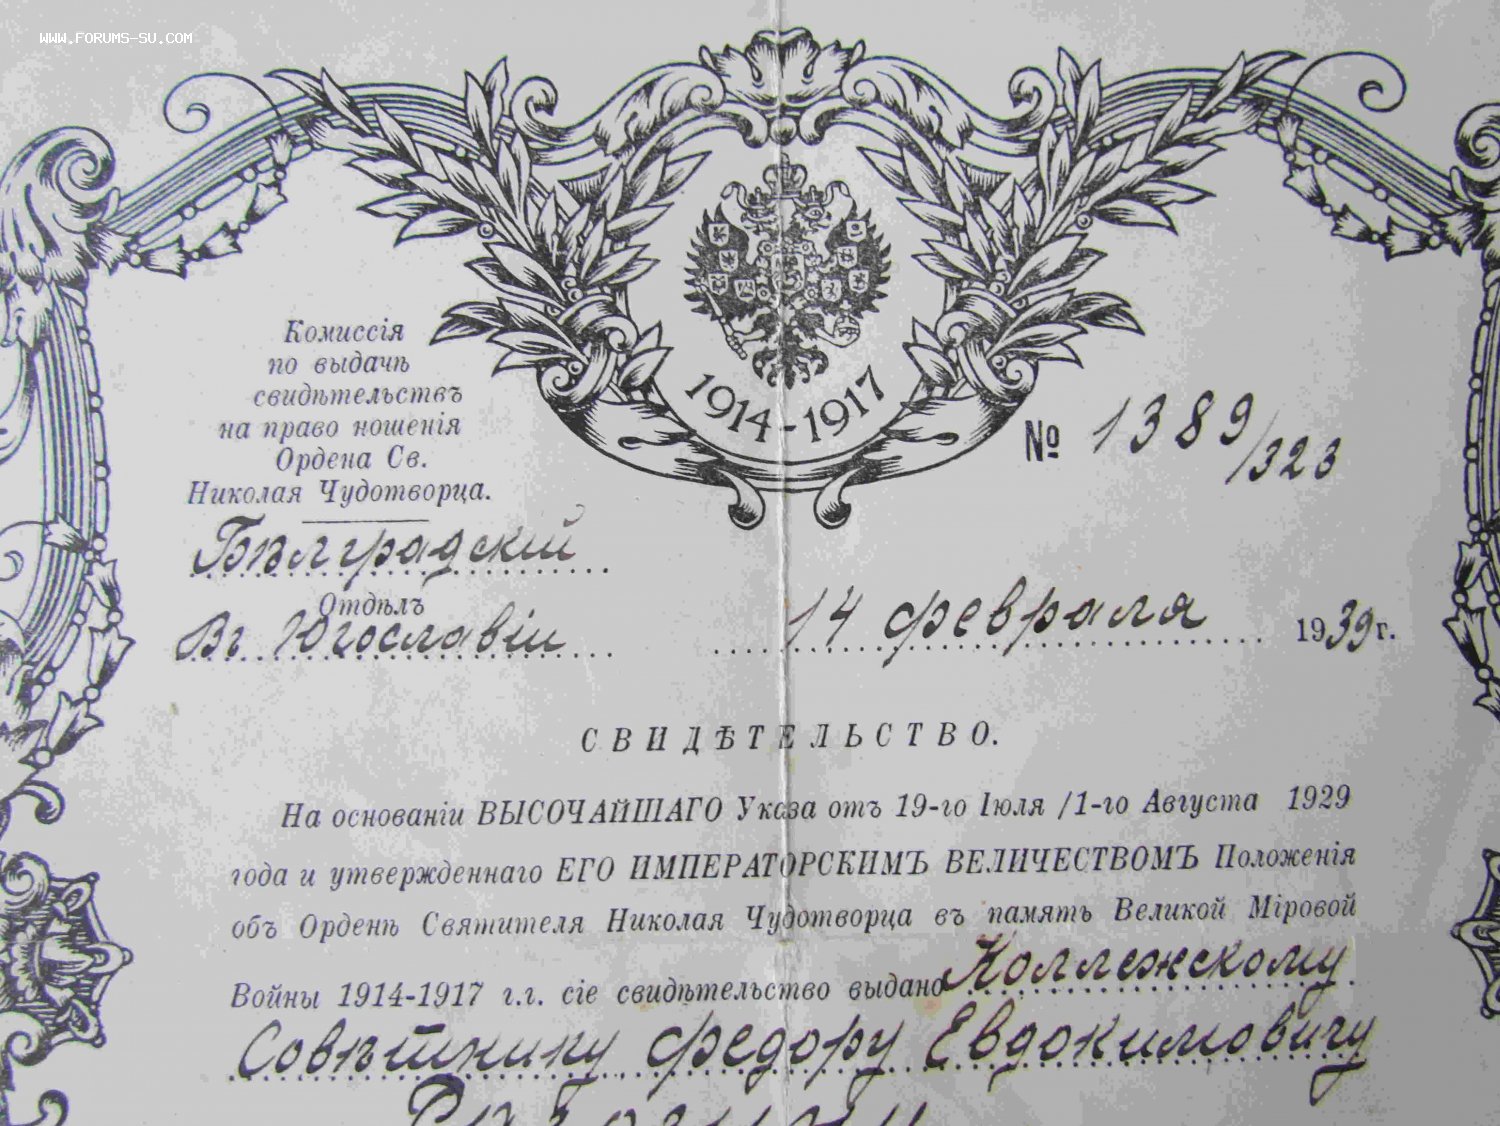 WWW.FORUMS-SU.COM
1914-1917
Комиссія
по выдачѣ
свидѣтельствъ
на право ношенія
Ордена Св.
Николая Чудотворца.
№ 1389/323
Бѣлградскій
Отдѣлъ
Въ Югославіи
14 февраля 1939 г.
СВИДѢТЕЛЬСТВО.
На основаніи ВЫСОЧАЙШАГО Указа отъ 19-го Іюля /1-го Августа 1929
года и утвержденнаго ЕГО ИМПЕРАТОРСКИМЪ ВЕЛИЧЕСТВОМЪ Положенія
объ Орденѣ Святителя Николая Чудотворца въ память Великой Міровой
Войны 1914-1917 г.г. сіе свидѣтельство выдано Коллежскому
Совѣтнику Федору Евдокимовичу